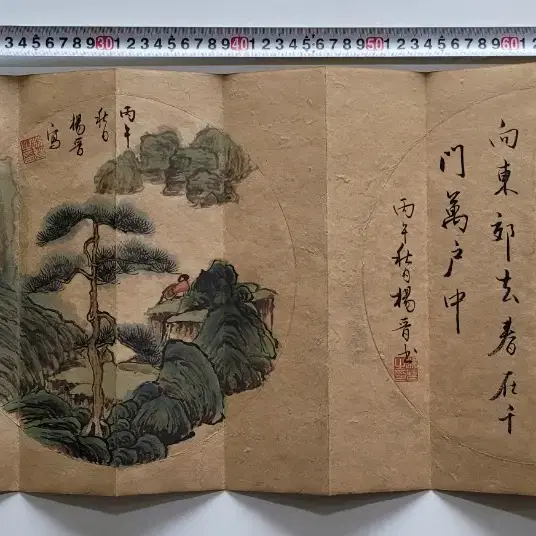 向東郊去春在千
門萬戶中
丙午秋日楊晉書
丙午
秋日
楊晉
寫
3 4 5 6 7 8 9 30 1 2 3 4 5 6 7 8 9 40 1 2 3 4 5 6 7 8 9 50 1 2 3 4 5 6 7 8 9 60 1